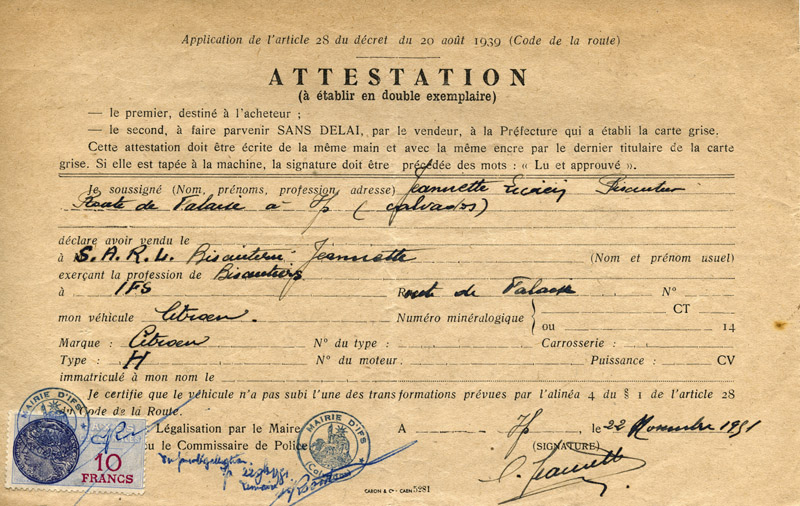 Application de l'article 28 du décret du 20 août 1939 (Code de la route)
ATTESTATION
(à établir en double exemplaire)
— le premier, destiné à l'acheteur ;
— le second, à faire parvenir SANS DELAI, par le vendeur, à la Préfecture qui a établi la carte grise.
Cette attestation doit être écrite de la même main et avec la même encre par le dernier titulaire de la carte
grise. Si elle est tapée à la machine, la signature doit être précédée des mots : « Lu et approuvé ».
Je soussigné (Nom, prénoms, profession, adresse) Jeannette
Route de Falaise à Ifs (Calvados)
déclare avoir vendu le
à S.A.R.L. Biscuiterie Jeannette (Nom et prénom usuel)
exerçant la profession de Biscuitiers
à IFS Route de Falaise N°
mon véhicule Citroen. Numéro minéralogique CT
ou 14
Marque : Citroen N° du type : Carrosserie :
Type : H N° du moteur Puissance : CV
immatriculé à mon nom le
Je certifie que le véhicule n'a pas subi l'une des transformations prévues par l'alinéa 4 du § 1 de l'article 28
Code de la Route.
Légalisation par le Maire A Ifs, le 22 Novembre 1951
ou le Commissaire de Police (SIGNATURE)
J. Jeannette
MAIRIE D'IFS
10
FRANCS
MAIRIE D'IFS
CARON & Cie - CAEN 5281